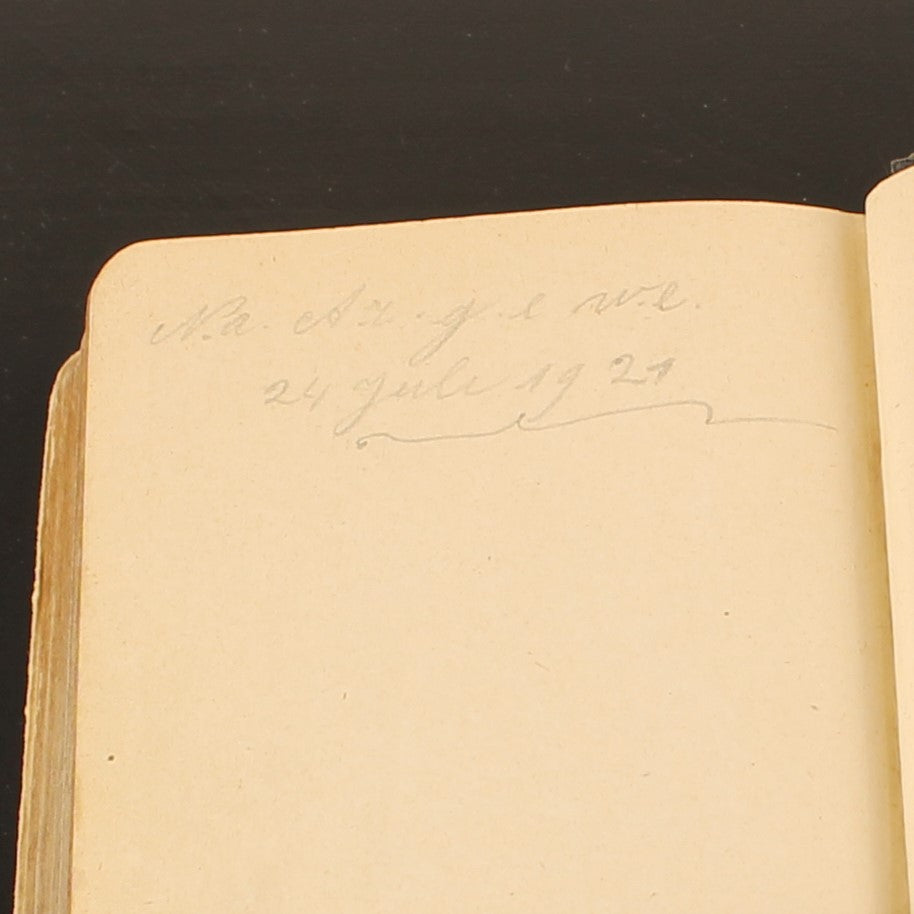 N.a. A.z. g. e w.e.
24 Juli 1921